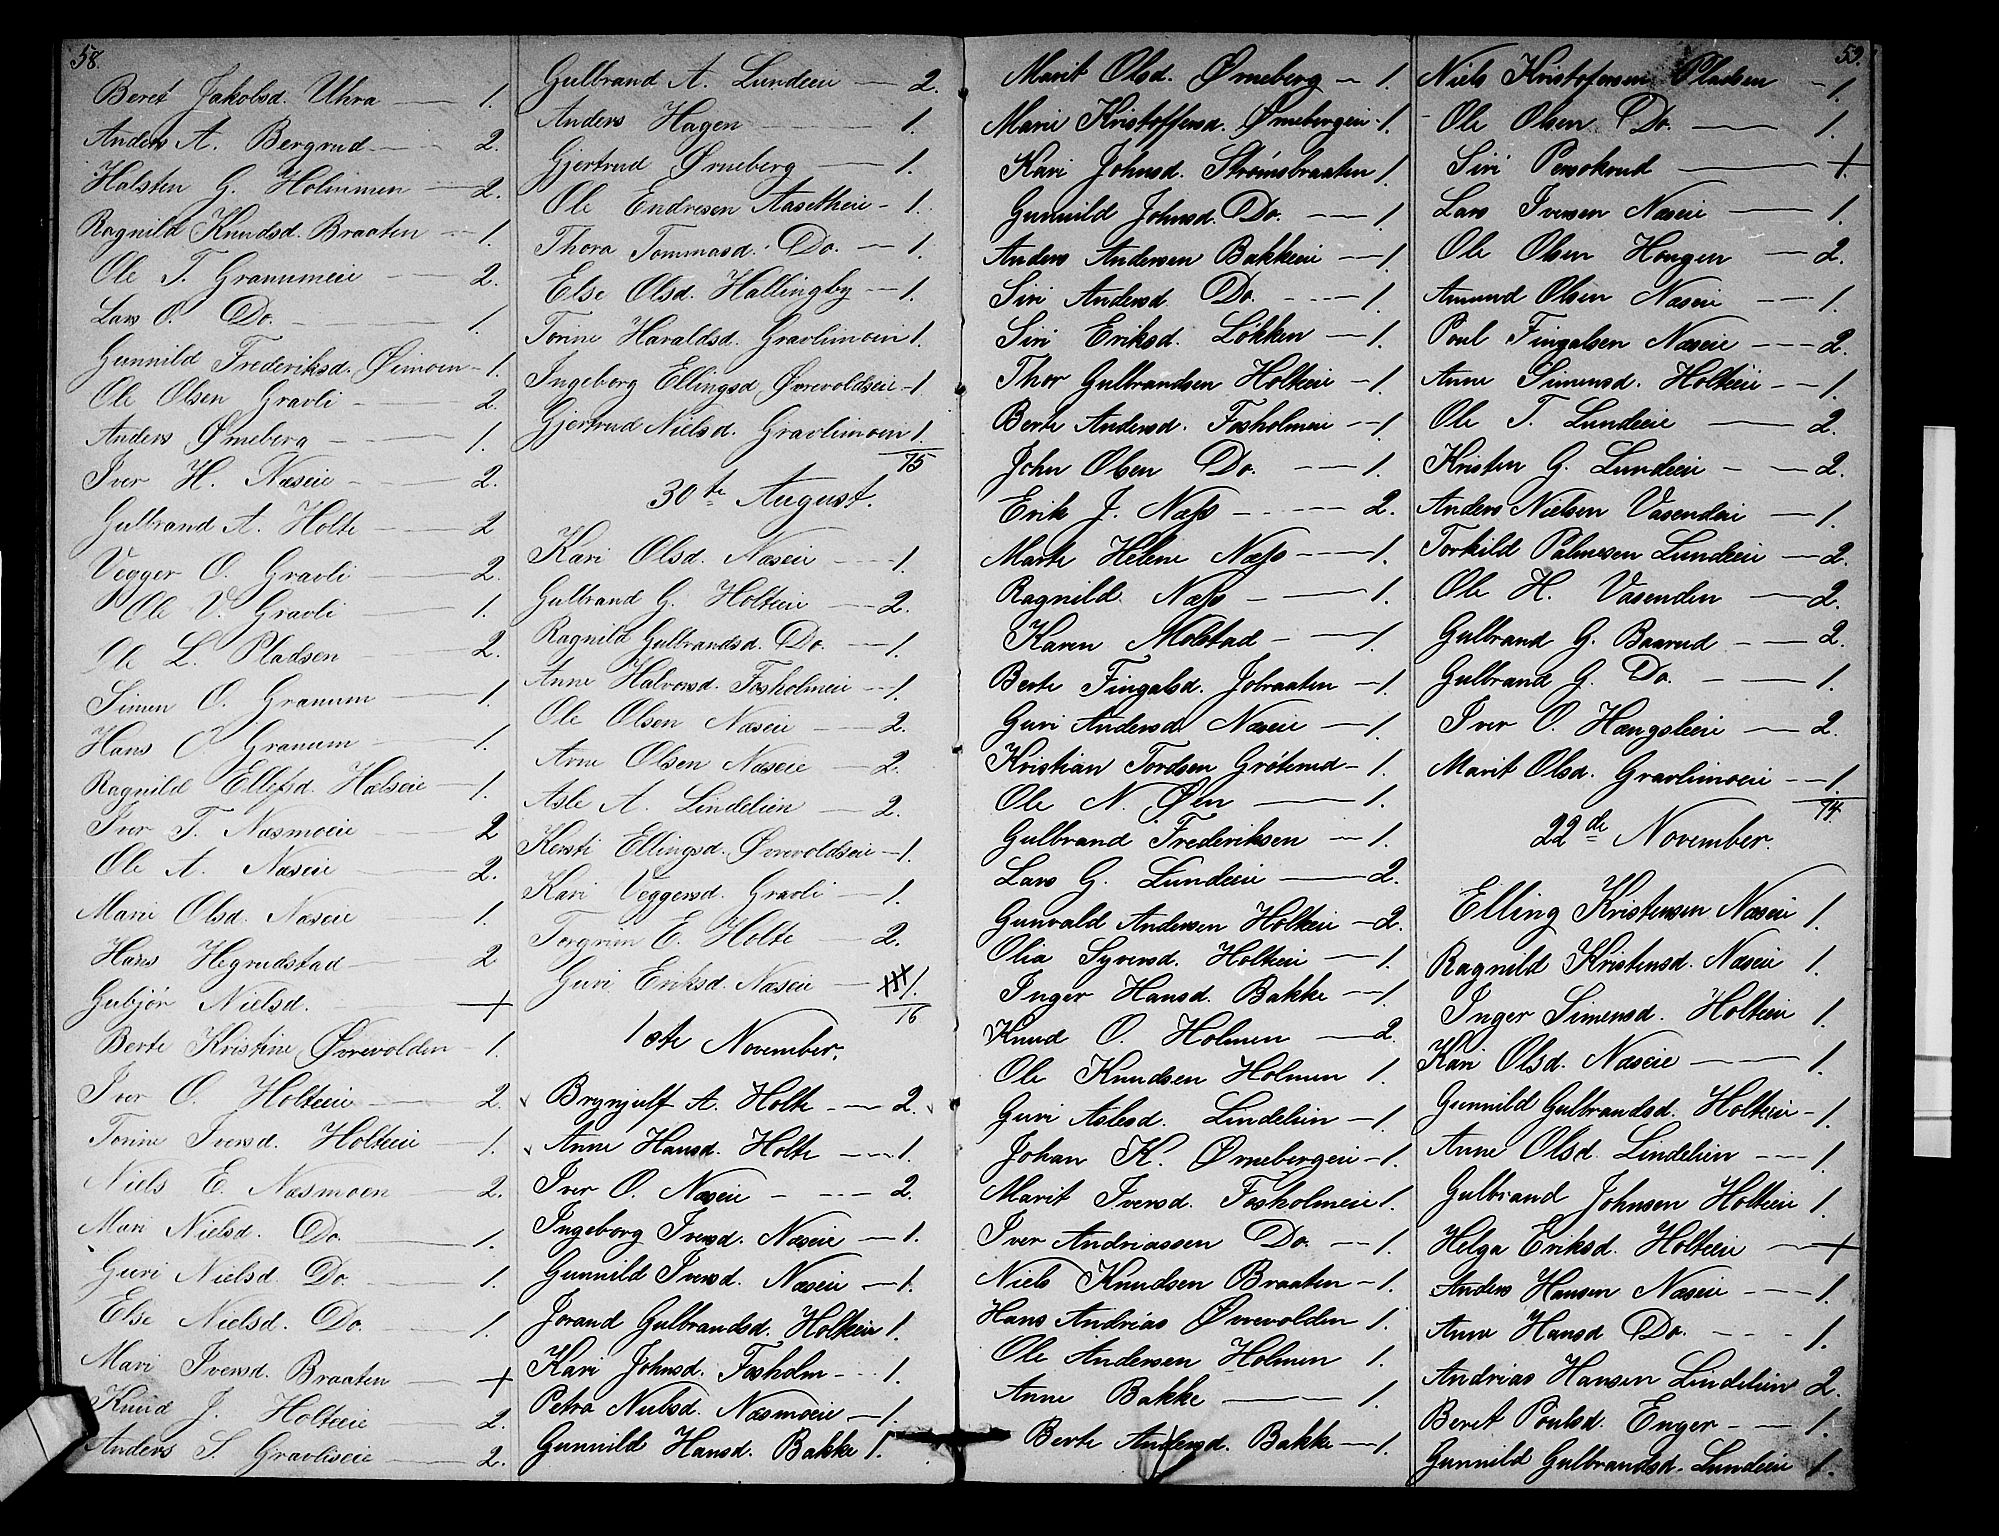 58.
Beret Jakobsd. Uhra — 1.
Anders A. Bergrud — 2.
Halsten G. Holmmen — 2.
Ragnild Knudsd. Braaten — 1.
Ole T. Granumeie — 2.
Lars O. Do. — 1.
Gunnild Frederiksd. Øimoen — 1.
Ole Olsen Gravli — 2.
Anders Ørneberg — 1.
Iver H. Næseie — 2.
Gulbrand A. Holte — 2
Vegger O. Gravli — 2.
Ole V. Gravli — 1.
Ole L. Pladsen — 2.
Simen O. Granum — 1.
Hans O. Granum — 1.
Ragnild Ellefsd. Hælseie — 1.
Iver T. Næsmoeie — 2
Ole A. Næseie — 2.
Marie Olsd. Næseie — 1.
Hans Hegrudstad — 2
Gubjør Nielsd. — +
Berte Kristine Øvrevolden — 1.
Iver O. Holteeie — 2.
Torine Iversd. Holteeie — 1.
Niels E. Næsmoen — 2.
Mari Nielsd. Do. — 1.
Guri Nielsd. Do. — 1.
Else Nielsd. Do. — 1.
Mari Iversd. Braaten — +
Knud J. Holteeie — 2.
Anders S. Gravliseie — 2.
Gulbrand A. Lundeeie — 2.
Anders Hagen — 1.
Gjertrud Ørneberg — 1.
Ole Endresen Aasetheie — 1.
Thora Tommasd. Do. — 1.
Else Olsd. Hallingby — 1.
Torine Haraldsd. Gravlimoeie 1.
Ingeborg Ellingsd. Øvrevoldseie — 1
Gjertrud Nielsd. Gravlimoeie 1.
75
30te August.
Kari Olsd. Næseie — 1.
Gulbrand G. Holteeie — 2.
Ragnild Gulbrandsd. Do. — 1.
Anne Halvorsd. Fosholmeie — 1.
Ole Olsen Næseie — 2.
Arne Olsen Næseie — 2.
Asle A. Lindelien — 2.
Kersti Ellingsd. Øvrevoldseie — 1.
Kari Veggersd. Gravli — 1.
Torgrim E. Holte — 2.
Guri Eriksd. Næseie — 1.
16
1ste November.
Brynjulf A. Holte — 2.
Anne Hansd. Holte — 1.
Iver O. Næseie — 2.
Ingeborg Iversd. Næseie — 1.
Gunnild Iversd. Næseie — 1.
Jorand Gulbrandsd. Holteeie 1.
Kari Johnsd. Fosholm — 1.
Petra Nielsd. Næsmoeie — 1.
Gunnild Hansd. Bakke 1.
Marit Olsd. Ørneberg — 1.
Marie Kristoffersd. Ørnebergeie — 1.
Kari Johnsd. Strømsbraaten 1.
Gunnild Johnsd. Do. — 1.
Anders Andersen Bakkeeie — 1.
Siri Andersd. Do. — 1.
Siri Eriksd. Løkken — 1.
Thor Gulbrandsen Holteeie — 1.
Berte Andersd. Fosholmeie — 1.
John Olsen Do. — 1.
Erik J. Næss — 2.
Marte Helene Næss — 1.
Ragnild Næss — 1.
Karen Molstad — 1.
Berte Fingalsd. Jobraaten — 1.
Guri Andersd. Næseie — 1.
Kristian Tordsen Grøterud — 1.
Ole N. Øen — 1.
Gulbrand Frederiksen — 1.
Lars G. Lundeeie — 2.
Gunvald Andersen Holteeie — 2.
Olia Syversd. Holteeie — 1.
Inger Hansd. Bakke — 1.
Knud O. Holmen — 2.
Ole Knudsen Holmen 1.
Guri Aslesd. Lindelien — 1.
Johan K. Ørnebergeie — 1.
Marit Iversd. Fosholmeie 1.
Iver Andriassen Do. — 1.
Niels Knudsen Braaten — 1.
Hans Andrias Øvrevolden 1.
Ole Andersen Holmen 1.
Anne Bakke — 1.
Berte Andersd. Bakke — 1.
59.
Niels Kristofersen Pladsen — 1.
Ole Olsen Do. — 1.
Siri Persokrud — +
Lars Iversen Næseie — 1.
Ole Olsen Hougen — 2.
Amund Olsen Næseie — 1.
Poul Fingalsen Næseie — 2.
Anne Simensd. Holteeie — 1.
Ole T. Lundeeie — 2.
Kristen G. Lundeeie — 2.
Anders Nielsen Vasendeie — 1.
Torkild Palmesen Lundeeie — 2.
Ole H. Vasenden — 2.
Gulbrand G. Baarud — 2.
Gulbrand G. Do. — 1.
Iver O. Haugsleeie — 2.
Marit Olsd. Gravlimoeie — 1.
74.
22de November.
Elling Kristensen Næseie 1.
Ragnild Kristensd. Næseie 1.
Inger Simensd. Holteeie 1.
Kari Olsd. Næseie — 1.
Gunnild Gulbrandsd. Holteeie — 1.
Anne Olsd. Lindelien — 1.
Gulbrand Johnsen Holteeie 1.
Helga Eriksd. Holteeie — +
Anders Hansen Næseie — 1.
Anne Hansd Do. — 1.
Andrias Hansen Lindelien 2.
Beret Poulsd. Enger — 1.
Gunnild Gulbrandsd. Lundeeie 1.